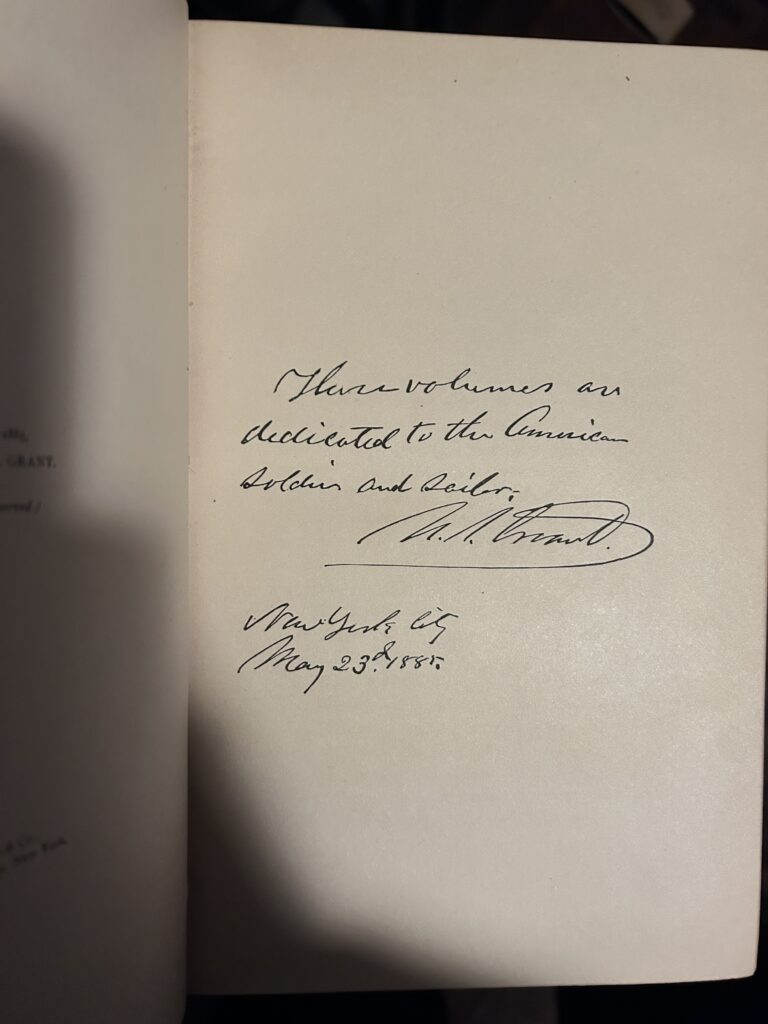 1885,
GRANT.
& Co.
New York
These volumes are
dedicated to the American
soldier and sailor.
U. S. Grant.
New York City
May 23d. 1885.